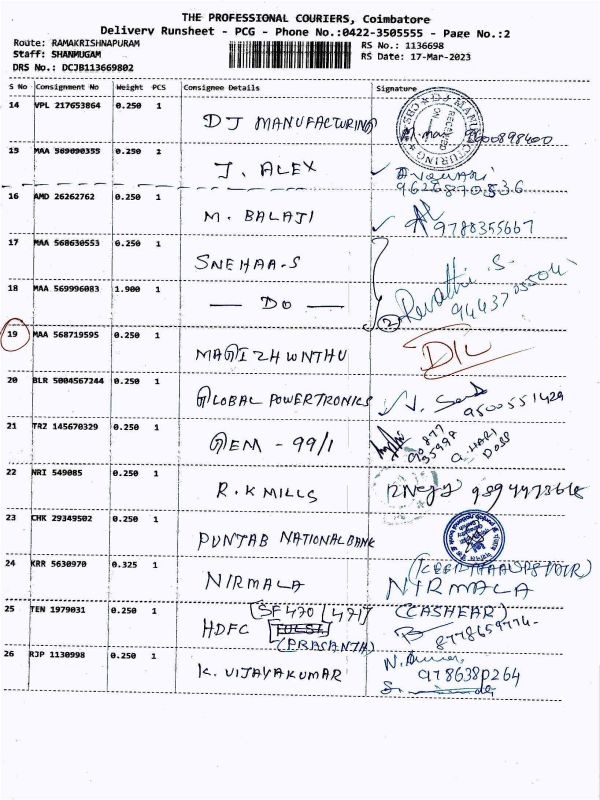 THE PROFESSIONAL COURIERS, Coimbatore
Delivery Runsheet - PCG - Phone No.:0422-3505555 - Page No.:2
Route: RAMAKRISHNAPURAM RS No.: 1136698
Staff: SHANMUGAM RS Date: 17-Mar-2023
DRS No.: DCJB113669802
S No Consignment No Weight PCS Consignee Details Signature
14 VPL 217653864 0.250 1 DJ MANUFACTURING 9600898400
15 MAA 569090355 0.250 1 J. ALEX 9626870836
16 AMD 26262762 0.250 1 M. BALAJI 9788355667
17 MAA 568630553 0.250 1 SNEHAA.S
18 MAA 569996083 1.900 1 — DO — 2 Revathi S.
19 MAA 568719595 0.250 1 MAGIZHWNTHU D/L
20 BLR 5004567244 0.250 1 GLOBAL POWERTRONICS 9500551429
21 TRZ 145670329 0.250 1 GEM - 99/1 G. HARI DOSS
22 NRI 549085 0.250 1 R.K MILLS
23 CHK 29349502 0.250 1 PUNJAB NATIONAL BANK
24 KRR 5630970 0.325 1 NIRMALA NIRMALA
25 TEN 1979031 0.250 1 HDFC SF470/471 (CASHEAR)
(PRASANTA)
26 RJP 1130998 0.250 1 K. VIJAYAKUMAR 9786380264